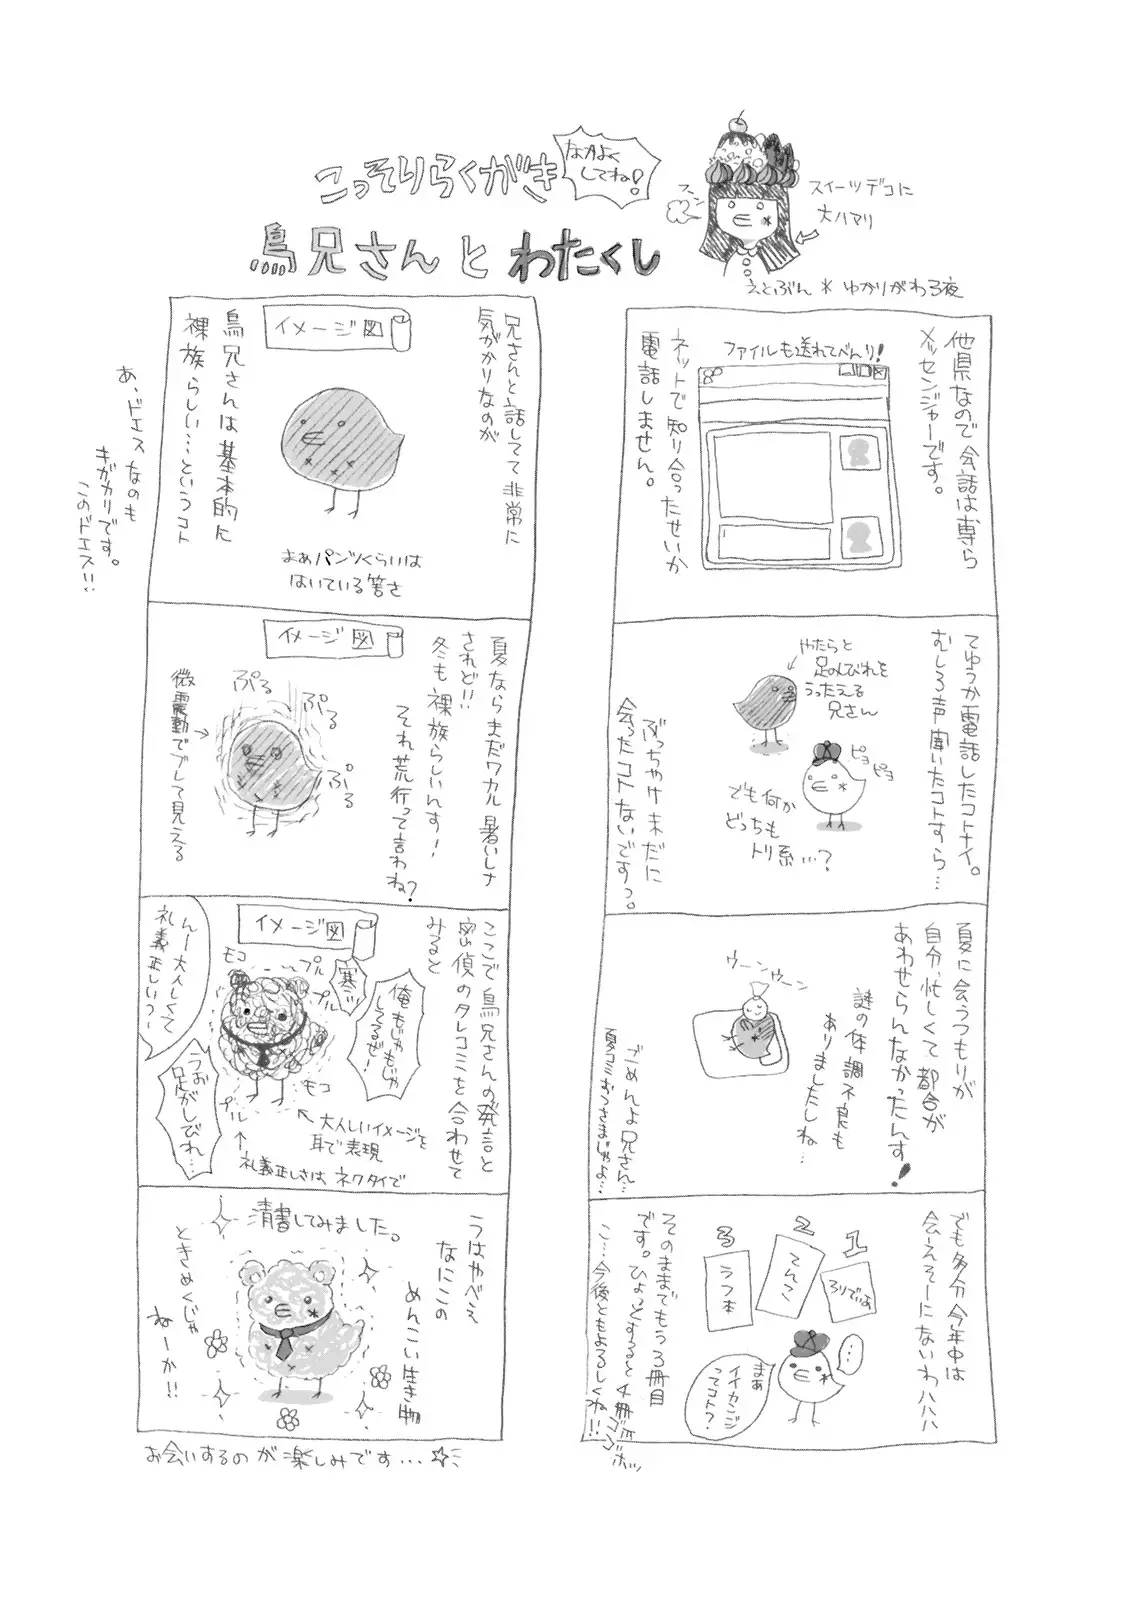 こっそりらくがき
なかよく
してね!
鳥兄さんとわたくし
フーン
スイーツデコに
大ハマリ
えとぶん*ゆかりがわる夜
他県なので会話は専ら
メッセンジャーです。
ファイルも送れてべんり!
ネットで知り合ったせいか
電話しません。
てゆうか電話したコトナイ。
むしろ声聞いたコトすら…
やたらと
足のしびれを
うったえる
兄さん
ピヨ
ピヨ
でも何か
どっちも
トリ系…?
ぶっちゃけ未だに
会ったコトないですっ。
夏に会うつもりが
自分、忙しくて都合が
あわせらんなかったんす!
ウーンウーン
謎の体調不良も
ありましたしね…
ごめんよ兄さん…
夏コミおつさまじゃよ…
でも多分今年中は
会えそーにないわハハハ
1
ろりでいよ
2
てんごく
3
うフ本
…
まぁ
イイカンジ
ってコト?
そのままでもう3冊目
です。ひょっとすると4冊
ゴゴゴホッ
こ…今後ともよろしくね!!
兄さんと話してて非常に
気がかりなのが
イメージ図
鳥兄さんは基本的に
裸族らしい…というコト
まぁパンツくらいは
はいている筈さ
あ、ドエスなのも
キガカリです。
このドエス!!
夏ならまだワカル暑いしさ
されど!!
冬も裸族らしいんす!
それ荒行って言わね?
イメージ図
ぷる
ぷる
ぷる
微震動でブレて見える
ここで鳥兄さんの発言と
密偵のタレコミを合わせて
みると
イメージ図
モコ
プル
プル
寒ッ
俺もじゃもじゃ
してるぜ!
んー大人しくて
礼義正しい?
うお
足がしびれ…
プル
モコ
大人しいイメージを
耳で表現
礼義正しさは、ネクタイで
うはやべえ
なにこの
めんこい生き物
清書してみました。
ときめくじゃ
ねーか!!
お会いするのが楽しみです…☆